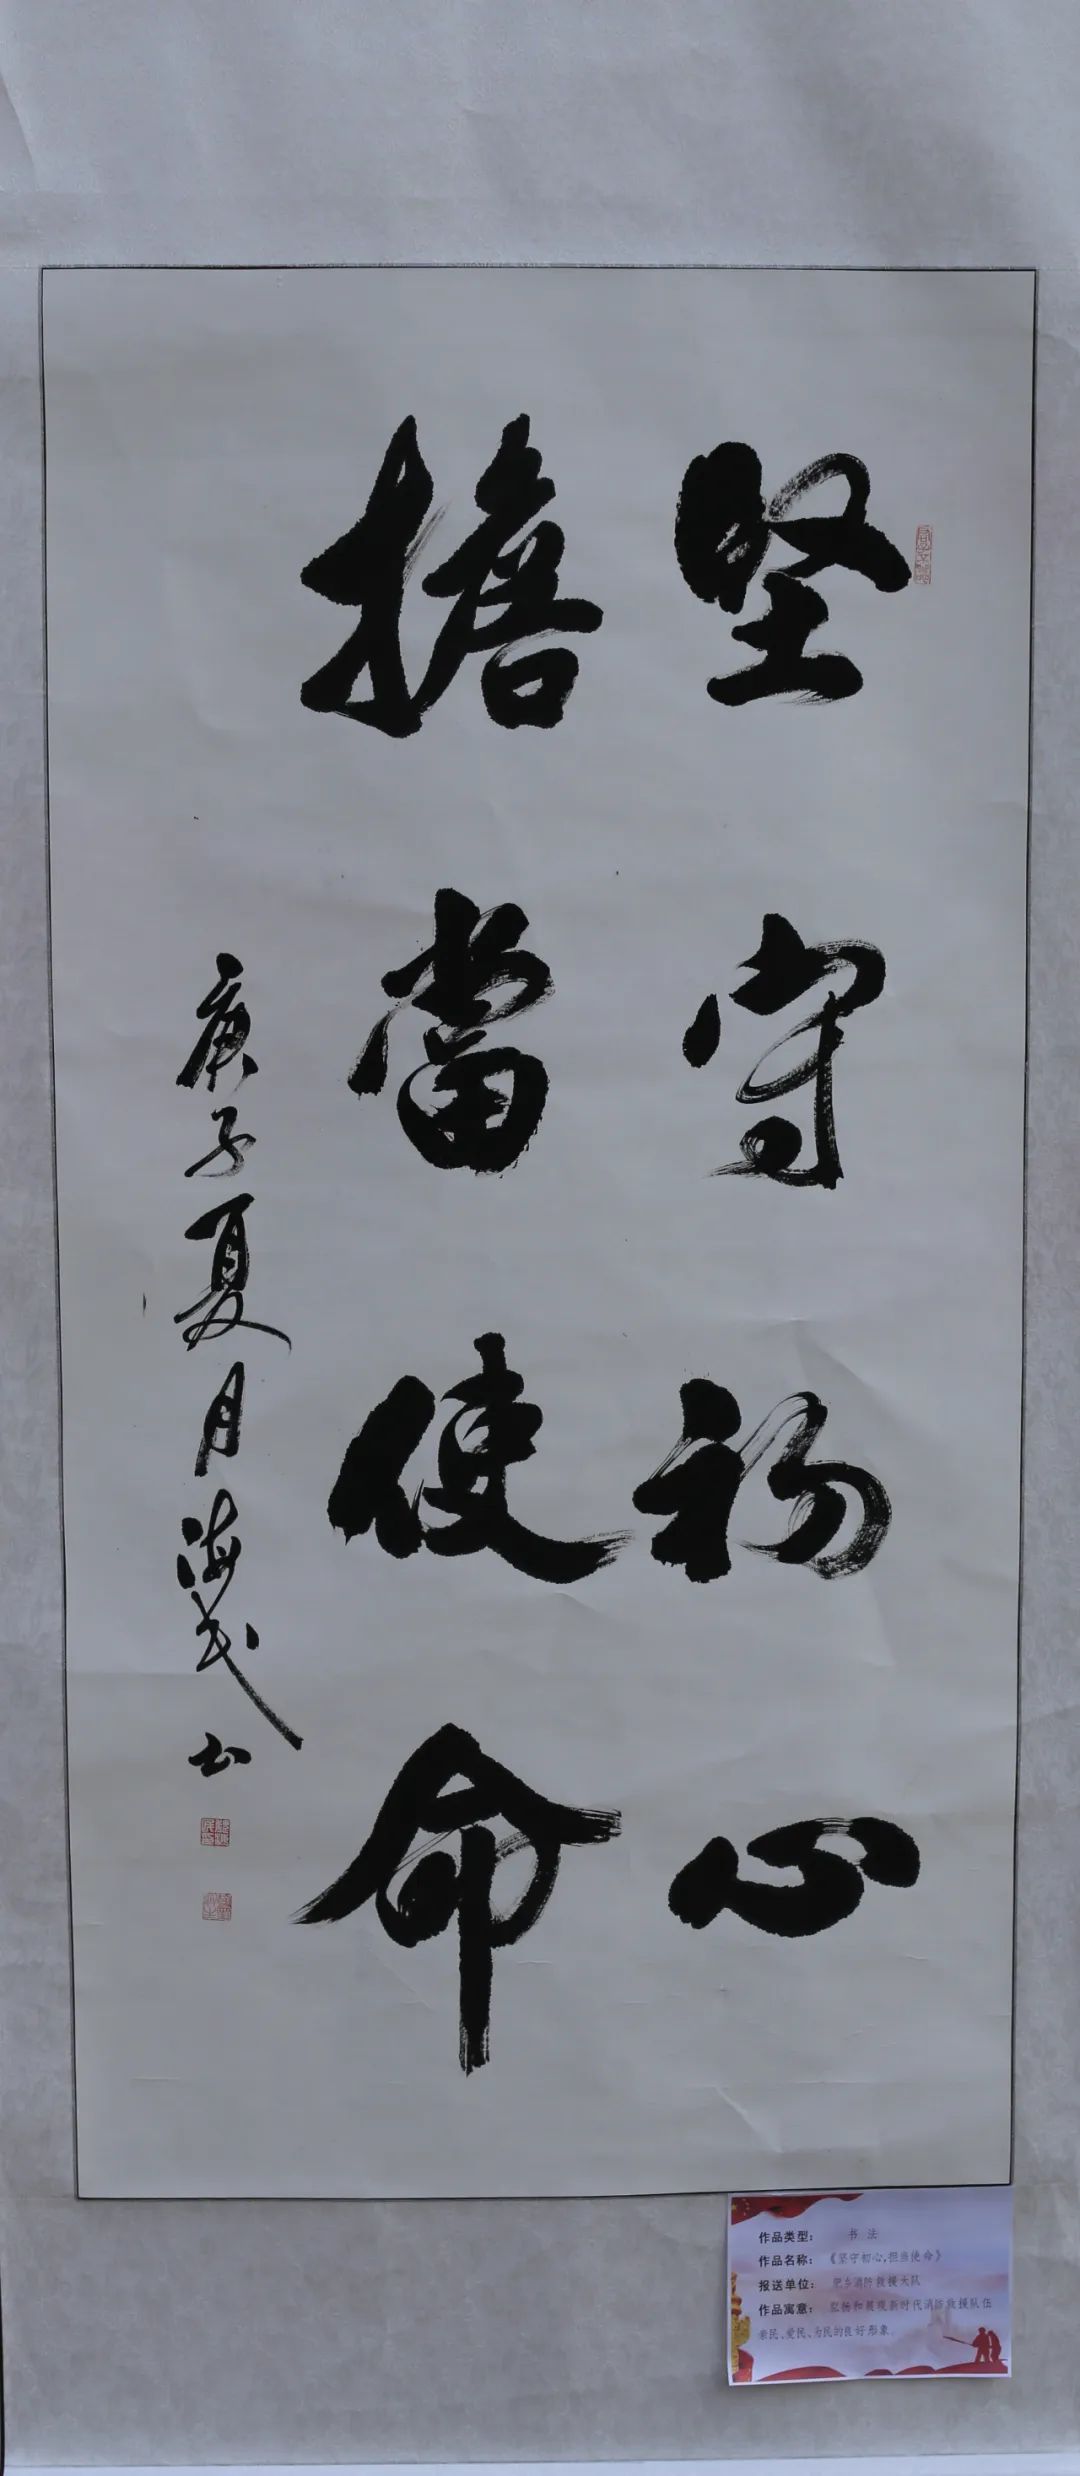 坚守初心
擔當使命
庚子夏月海民书
作品类型： 书法
作品名称：《坚守初心，担当使命》
报送单位： 肥乡消防救援大队
作品寓意： 弘扬和展现新时代消防救援队伍
亲民、爱民、为民的良好形象。